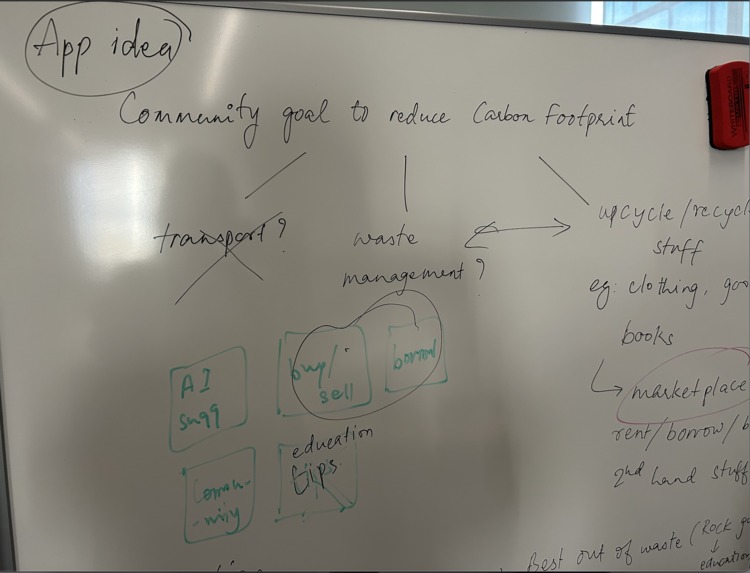 App idea
Community goal to reduce Carbon Footprint
transport?
waste
management?
upcycle/recycl
stuff
eg: clothing, goo
books
marketplace
rent/borrow/b
2nd hand stuff
AI
sugg
buy/
sell
borrow
education
tips
Commu-
-nity
Best out of waste (Rock g
education